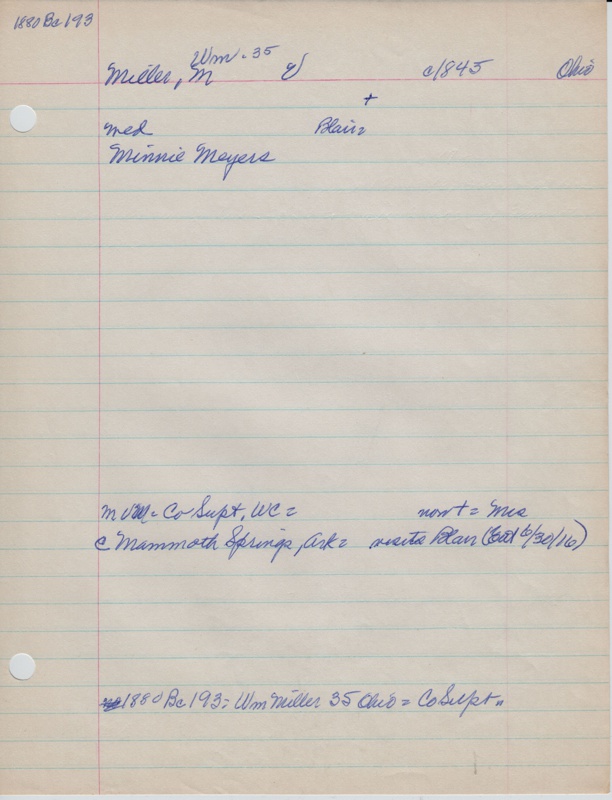 1880 Bc 193
Wm - 35
Miller, M c1845 Ohio
+
med Blair=
Minnie Meyers
m = Co Supt, WC = now + = Mrs
c Mammoth Springs, Ark = visits Blair (Ent 6/30/16)
1880 Bc 193 = Wm Miller 35 Ohio = Co Supt "